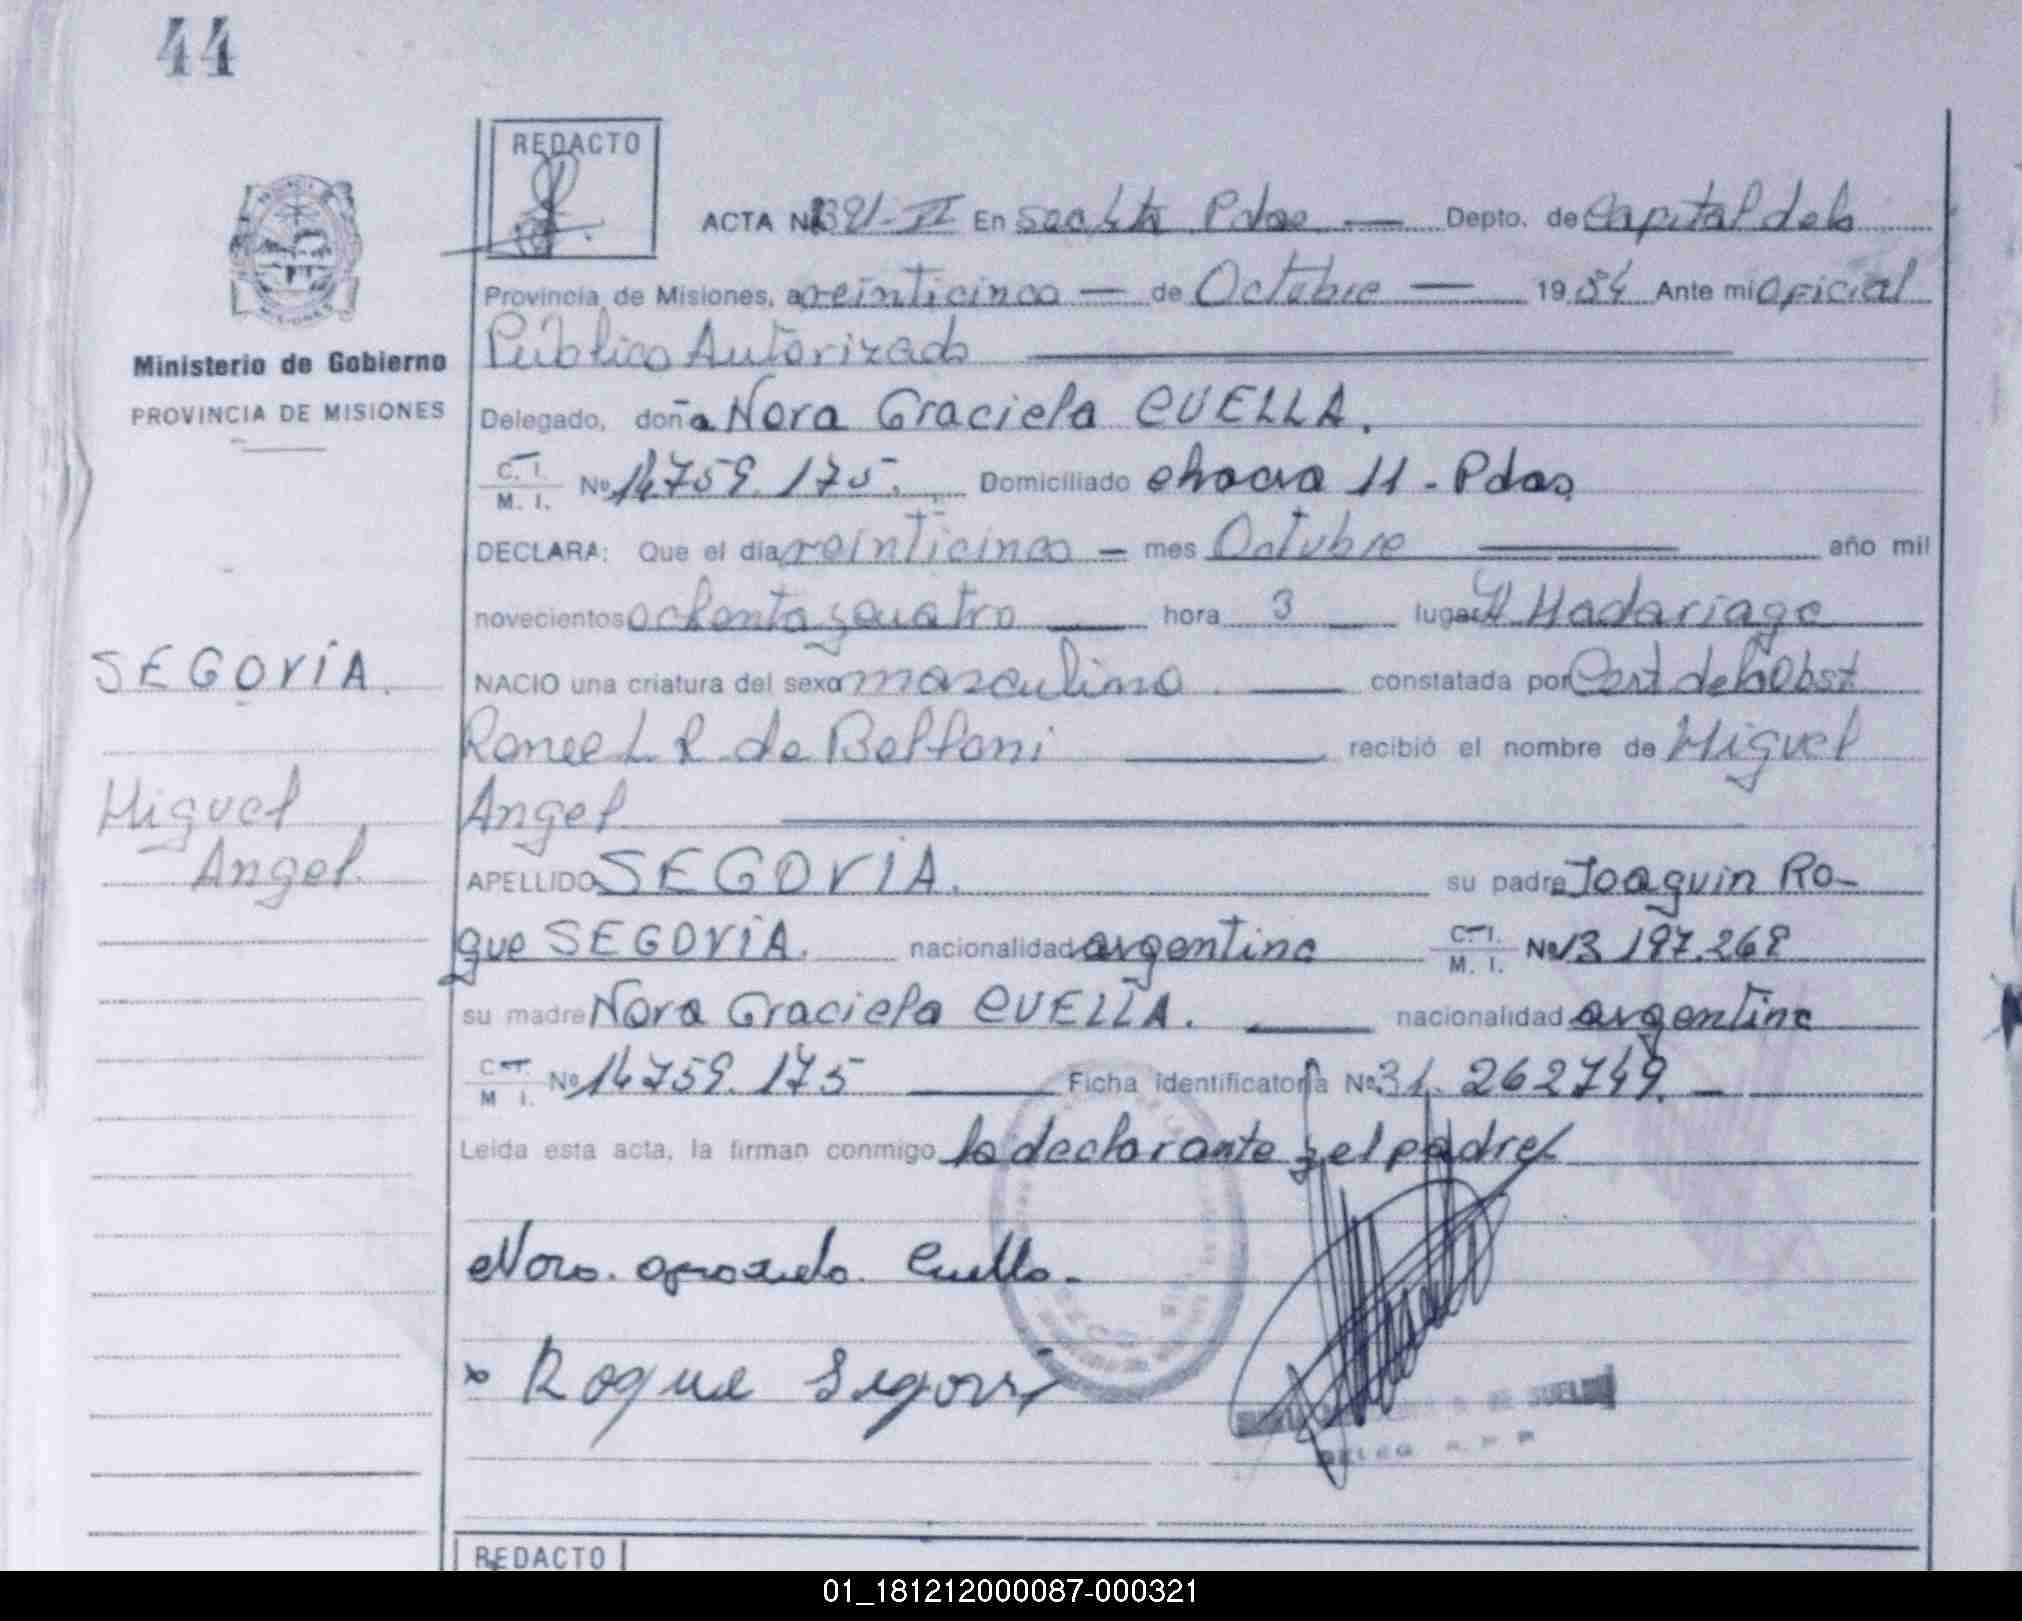 44
REDACTO
ACTA Nº 1391-VI En secc 4ta Pdas — Depto. de Capital de la
Provincia de Misiones, a veinticinco — de Octubre — 19 84 Ante mi Oficial
Público Autorizado
Ministerio de Gobierno
PROVINCIA DE MISIONES
Delegado, doña Nora Graciela CUELLA.
C. I.
M. I. Nº 14759.175. Domiciliado chacra 11 - Pdas
DECLARA: Que el día veinticinco — mes Octubre — año mil
novecientos ochenta y cuatro — hora 3 — lugar H. Madariaga
SEGOVIA.
NACIO una criatura del sexo masculino. — constatada por Cert de la Obst
L. R. de Belloni — recibió el nombre de Miguel
Miguel
Angel
Angel.
APELLIDO SEGOVIA. su padre Joaquin Ro-
que SEGOVIA. nacionalidad argentina C. I.
M. I. Nº 13 197.268
su madre Nora Graciela CUELLA. — nacionalidad argentina
C. I.
M. I. Nº 14759.175 — Ficha identificatoria Nº 31.262749. —
Leída esta acta, la firman conmigo la declarante y el padre
Nora Graciela Cuella.
Roque Segovia
DELEG. R. P. P.
REDACTO
01_181212000087-000321